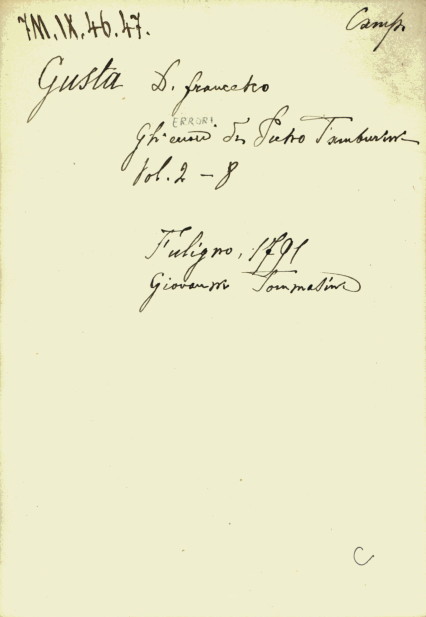 7M.IX.46.47.
Camp.
Gusta D. Francesco
ERRORI
Gli errori di Pietro Tamburini
Vol. 2 - 8
Fuligno, 1791
Giovanni Tommasini
C